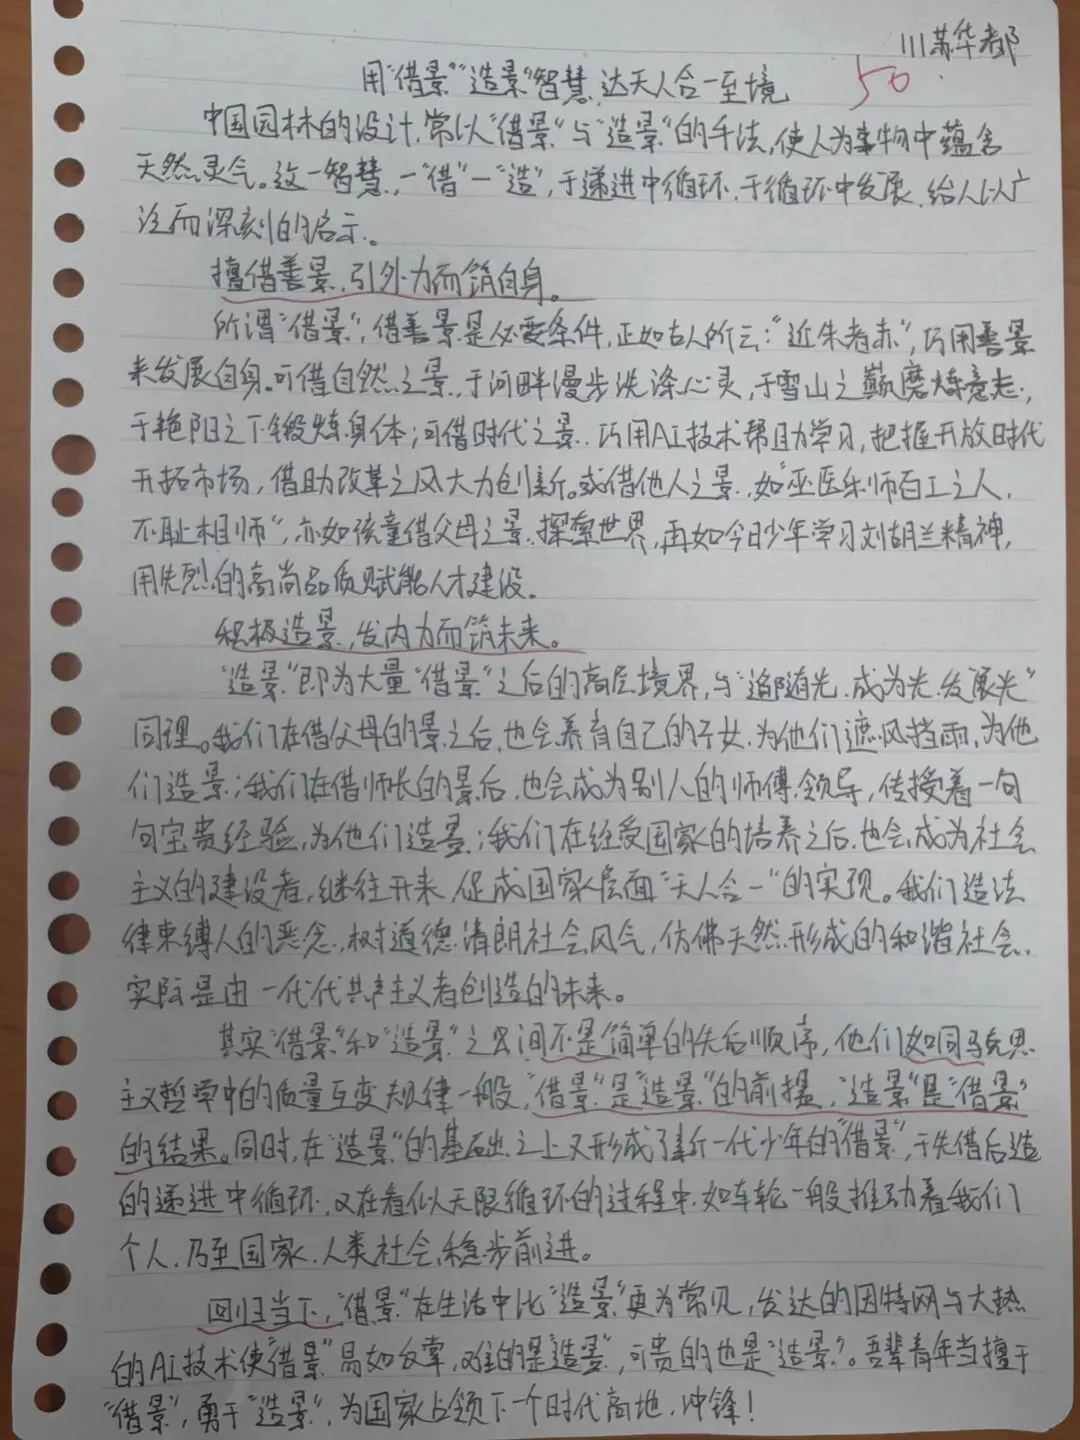 111苏华都
50
用“借景”“造景”智慧,达天人合一至境
中国园林的设计,常以“借景”与“造景”的手法,使人为事物中蕴含
天然灵气。这一智慧,一“借”一“造”,于递进中循环,于循环中发展,给人以广
泛而深刻的启示。
擅借善景,引外力而筑自身。
所谓“借景”,借善景是必要条件,正如古人所云:“近朱者赤”,巧用善景
来发展自身。可借自然之景,于河畔漫步洗涤心灵,于雪山之巅磨炼意志,
于艳阳之下锻炼身体;可借时代之景,巧用AI技术帮助学习,把握开放时代
开拓市场,借助改革之风大力创新。或借他人之景,如“巫医乐师百工之人,
不耻相师”,亦如孩童借父母之景,探索世界,再如今日少年学习刘胡兰精神,
用先烈的高尚品质赋能人才建设。
积极造景,发内力而筑未来。
“造景”即为大量“借景”之后的高层境界,与“追随光,成为光,发展光”
同理。我们在借父母的景之后,也会养育自己的子女,为他们遮风挡雨,为他
们造景;我们在借师长的景后,也会成为别人的师傅、领导,传授着一句
句宝贵经验,为他们造景;我们在经受国家的培养之后,也会成为社会
主义的建设者,继往开来,促成国家层面“天人合一”的实现。我们造法
律束缚人的恶念,树道德清朗社会风气,仿佛天然形成的和谐社会,
实际是由一代代共产主义者创造的未来。
其实“借景”和“造景”之间不是简单的先后顺序,他们如同马克思
主义哲学中的质量互变规律一般,“借景”是“造景”的前提,“造景”是“借景”
的结果。同时,在“造景”的基础之上又形成了新一代少年的“借景”,于先借后造
的递进中循环,又在看似无限循环的过程中,如车轮一般推动着我们
个人,乃至国家、人类社会,稳步前进。
回归当下,“借景”在生活中比“造景”更为常见,发达的因特网与大热
的AI技术使“借景”易如反掌,难的是“造景”,可贵的也是“造景”。吾辈青年当擅于
“借景”,勇于“造景”,为国家占领下一个时代高地,冲锋!